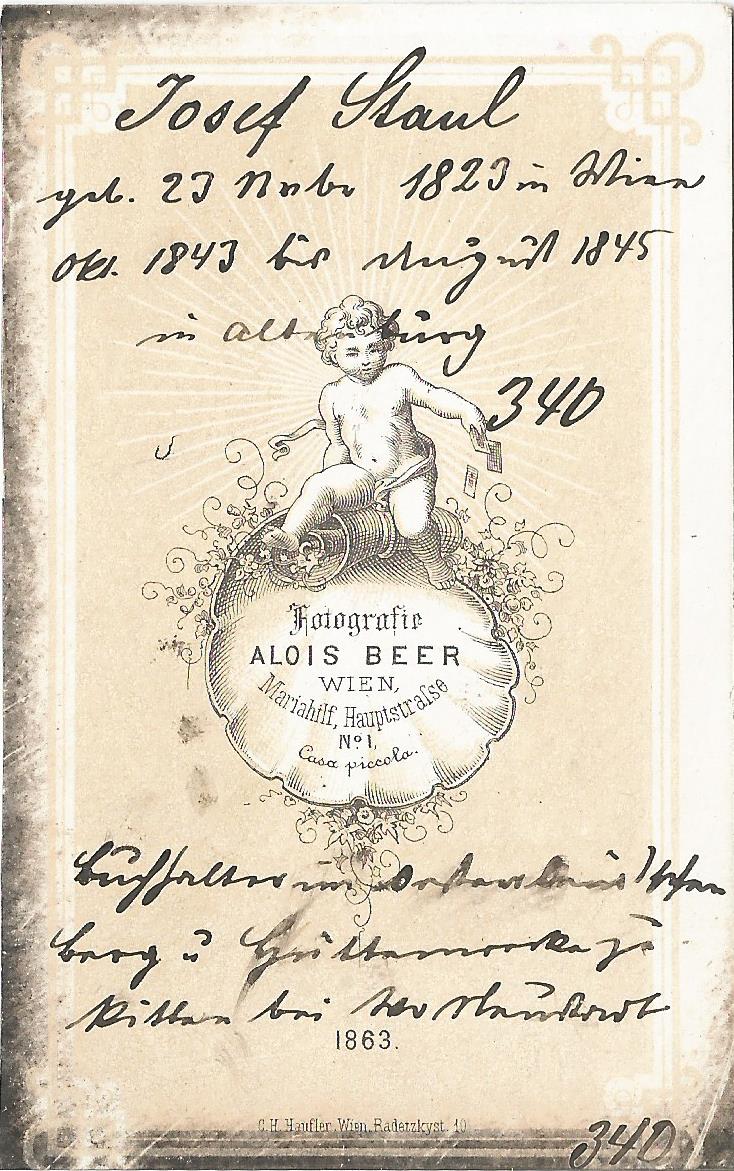 Josef Staul
geb. 23 Novbr 1823 in Wien
Okt. 1843 bis August 1845
in Altenburg
340
Fotografie
ALOIS BEER
WIEN,
Mariahilf, Hauptstraſse
No 1,
Casa piccola.
Buchhalter im
Berg u Hüttenwerke zu
bei Wr Neustadt
1863.
C. H. Haufler, Wien, Radetzkyst. 10
340